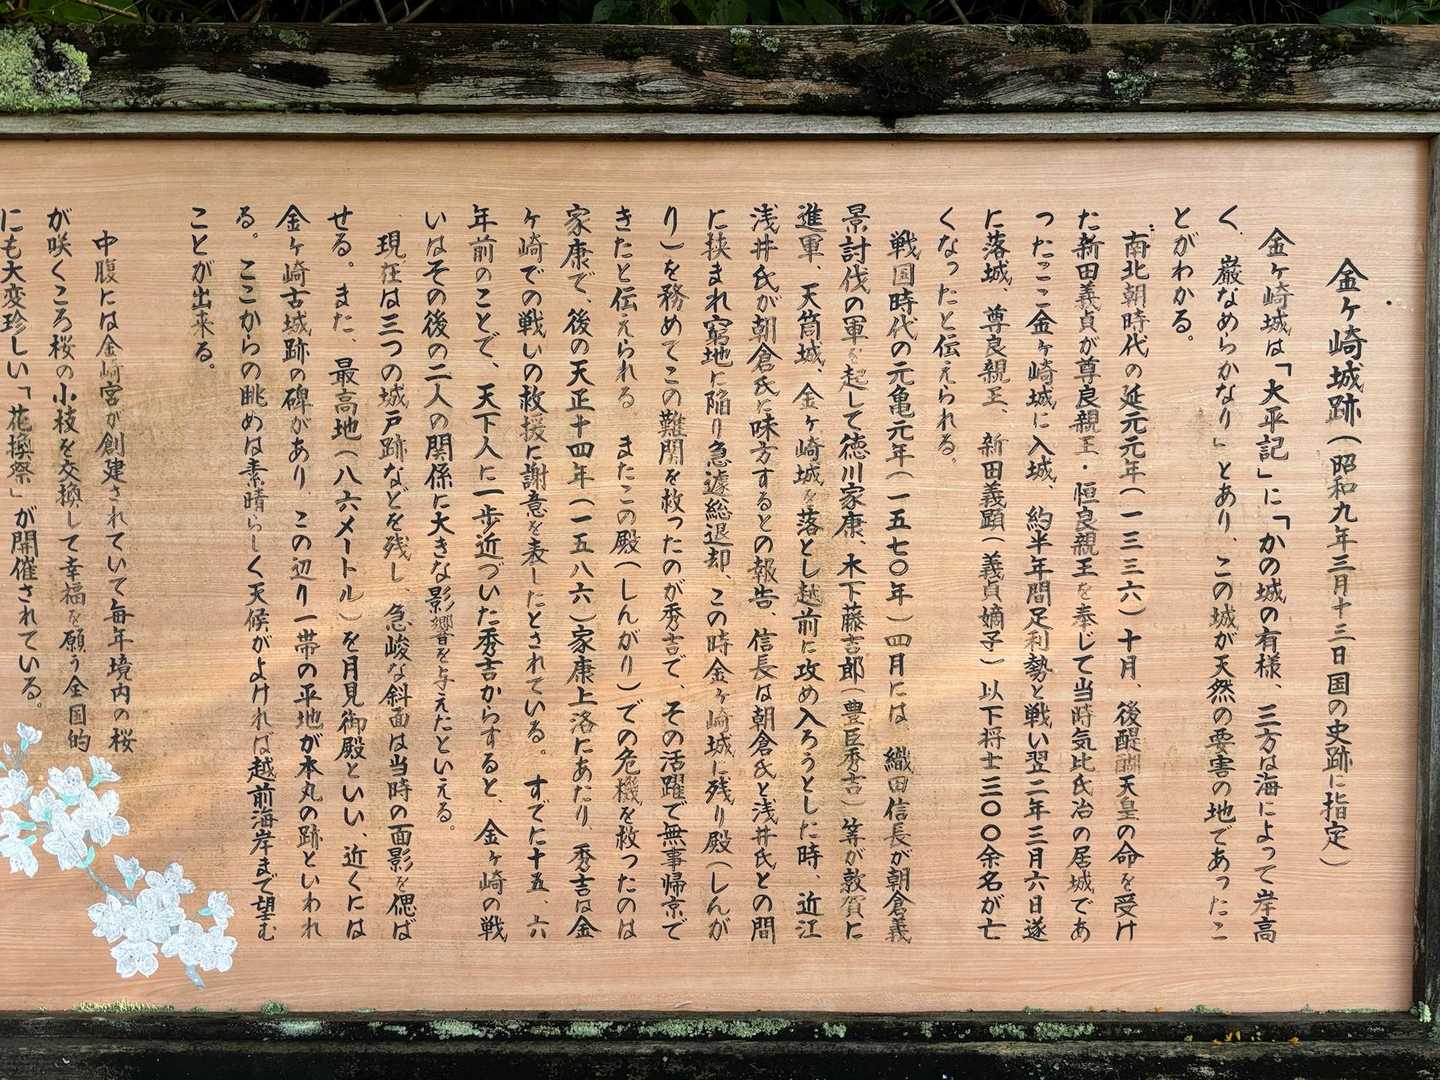 金ヶ崎城跡(昭和九年三月十三日国の史跡に指定)
金ヶ崎城は「太平記」に「かの城の有様、三方は海によって岸高
く、巌なめらかなり」とあり、この城が天然の要害の地であったこ
とがわかる。
南北朝時代の延元元年(一三三六)十月、後醍醐天皇の命を受け
た新田義貞が尊良親王・恒良親王を奉じて当時気比氏治の居城であ
ったここ金ヶ崎城に入城、約半年間足利勢と戦い翌二年三月六日遂
に落城、尊良親王、新田義顕(義貞嫡子)以下将士三〇〇余名が亡
くなったと伝えられる。
戦国時代の元亀元年(一五七〇年)四月には、織田信長が朝倉義
景討伐の軍を起して徳川家康、木下藤吉郎(豊臣秀吉)等が敦賀に
進軍、天筒城、金ヶ崎城を落とし越前に攻め入ろうとした時、近江
浅井氏が朝倉氏に味方するとの報告、信長は朝倉氏と浅井氏との間
に狭まれ窮地に陥り急遽総退却、この時金ヶ崎城に残り殿(しんが
り)を務めてこの難関を救ったのが秀吉で、その活躍で無事帰京で
きたと伝えられる またこの殿(しんがり)での危機を救ったのは
家康で、後の天正十四年(一五八六)家康上洛にあたり、秀吉は金
ヶ崎での戦いの救援に謝意を表したとされている。すでに十五、六
年前のことで、天下人に一歩近づいた秀吉からすると、金ヶ崎の戦
いはその後の二人の関係に大きな影響を与えたといえる。
現在は三つの城戸跡などを残し、急峻な斜面は当時の面影を偲ば
せる。また、最高地(八六メートル)を月見御殿といい、近くには
金ヶ崎古城跡の碑があり、この辺り一帯の平地が本丸の跡といわれ
る。ここからの眺めは素晴らしく天候がよければ越前海岸まで望む
ことが出来る。
中腹には金崎宮が創建されていて毎年境内の桜
が咲くころ桜の小枝を交換して幸福を願う全国的
にも大変珍しい「花換祭」が開催されている。